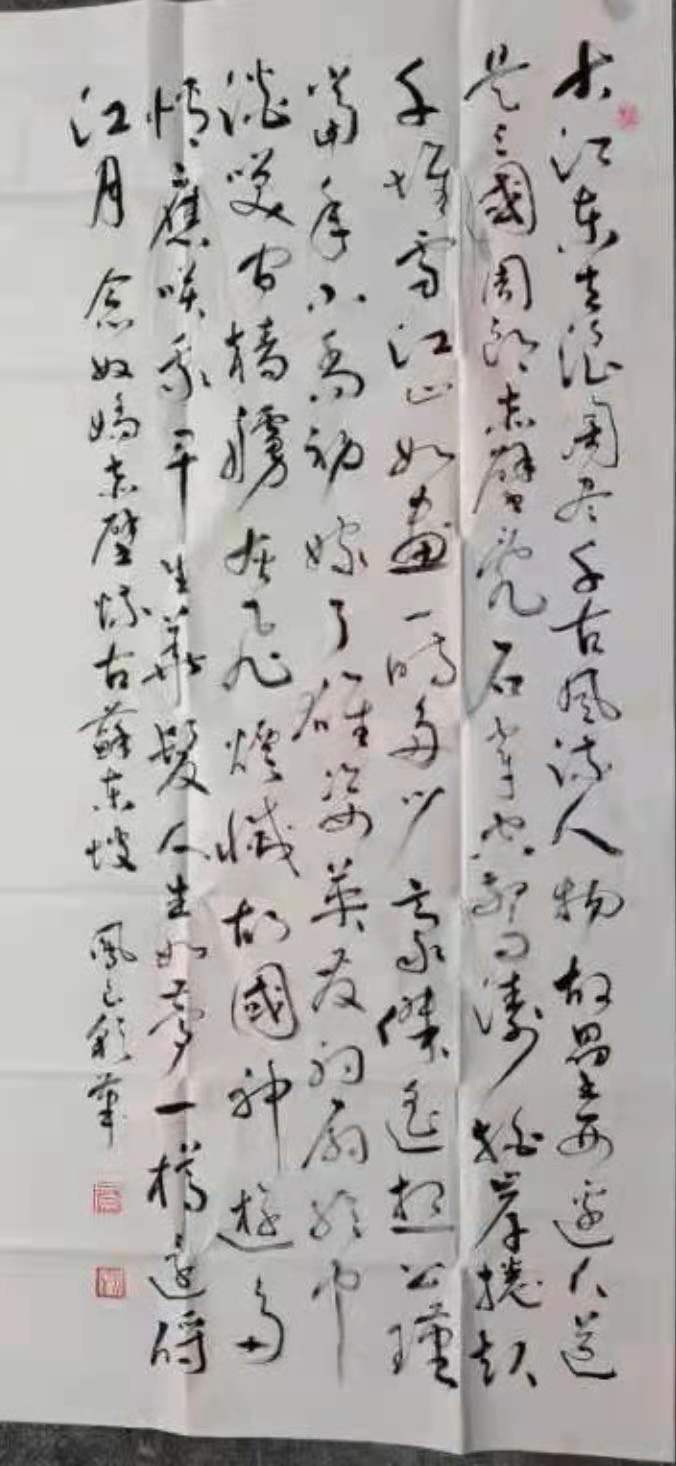 大江东去浪淘尽千古风流人物故垒西边人道
是三國周郎赤壁乱石穿空惊涛拍岸捲起
千堆雪江山如画一时多少豪傑遥想公瑾
當年小乔初嫁了雄姿英发羽扇纶巾
谈笑间樯艣灰飞烟滅故國神遊多
情应笑我早生华髮人生如梦一樽还酹
江月 念奴娇赤壁怀古苏东坡 鳳